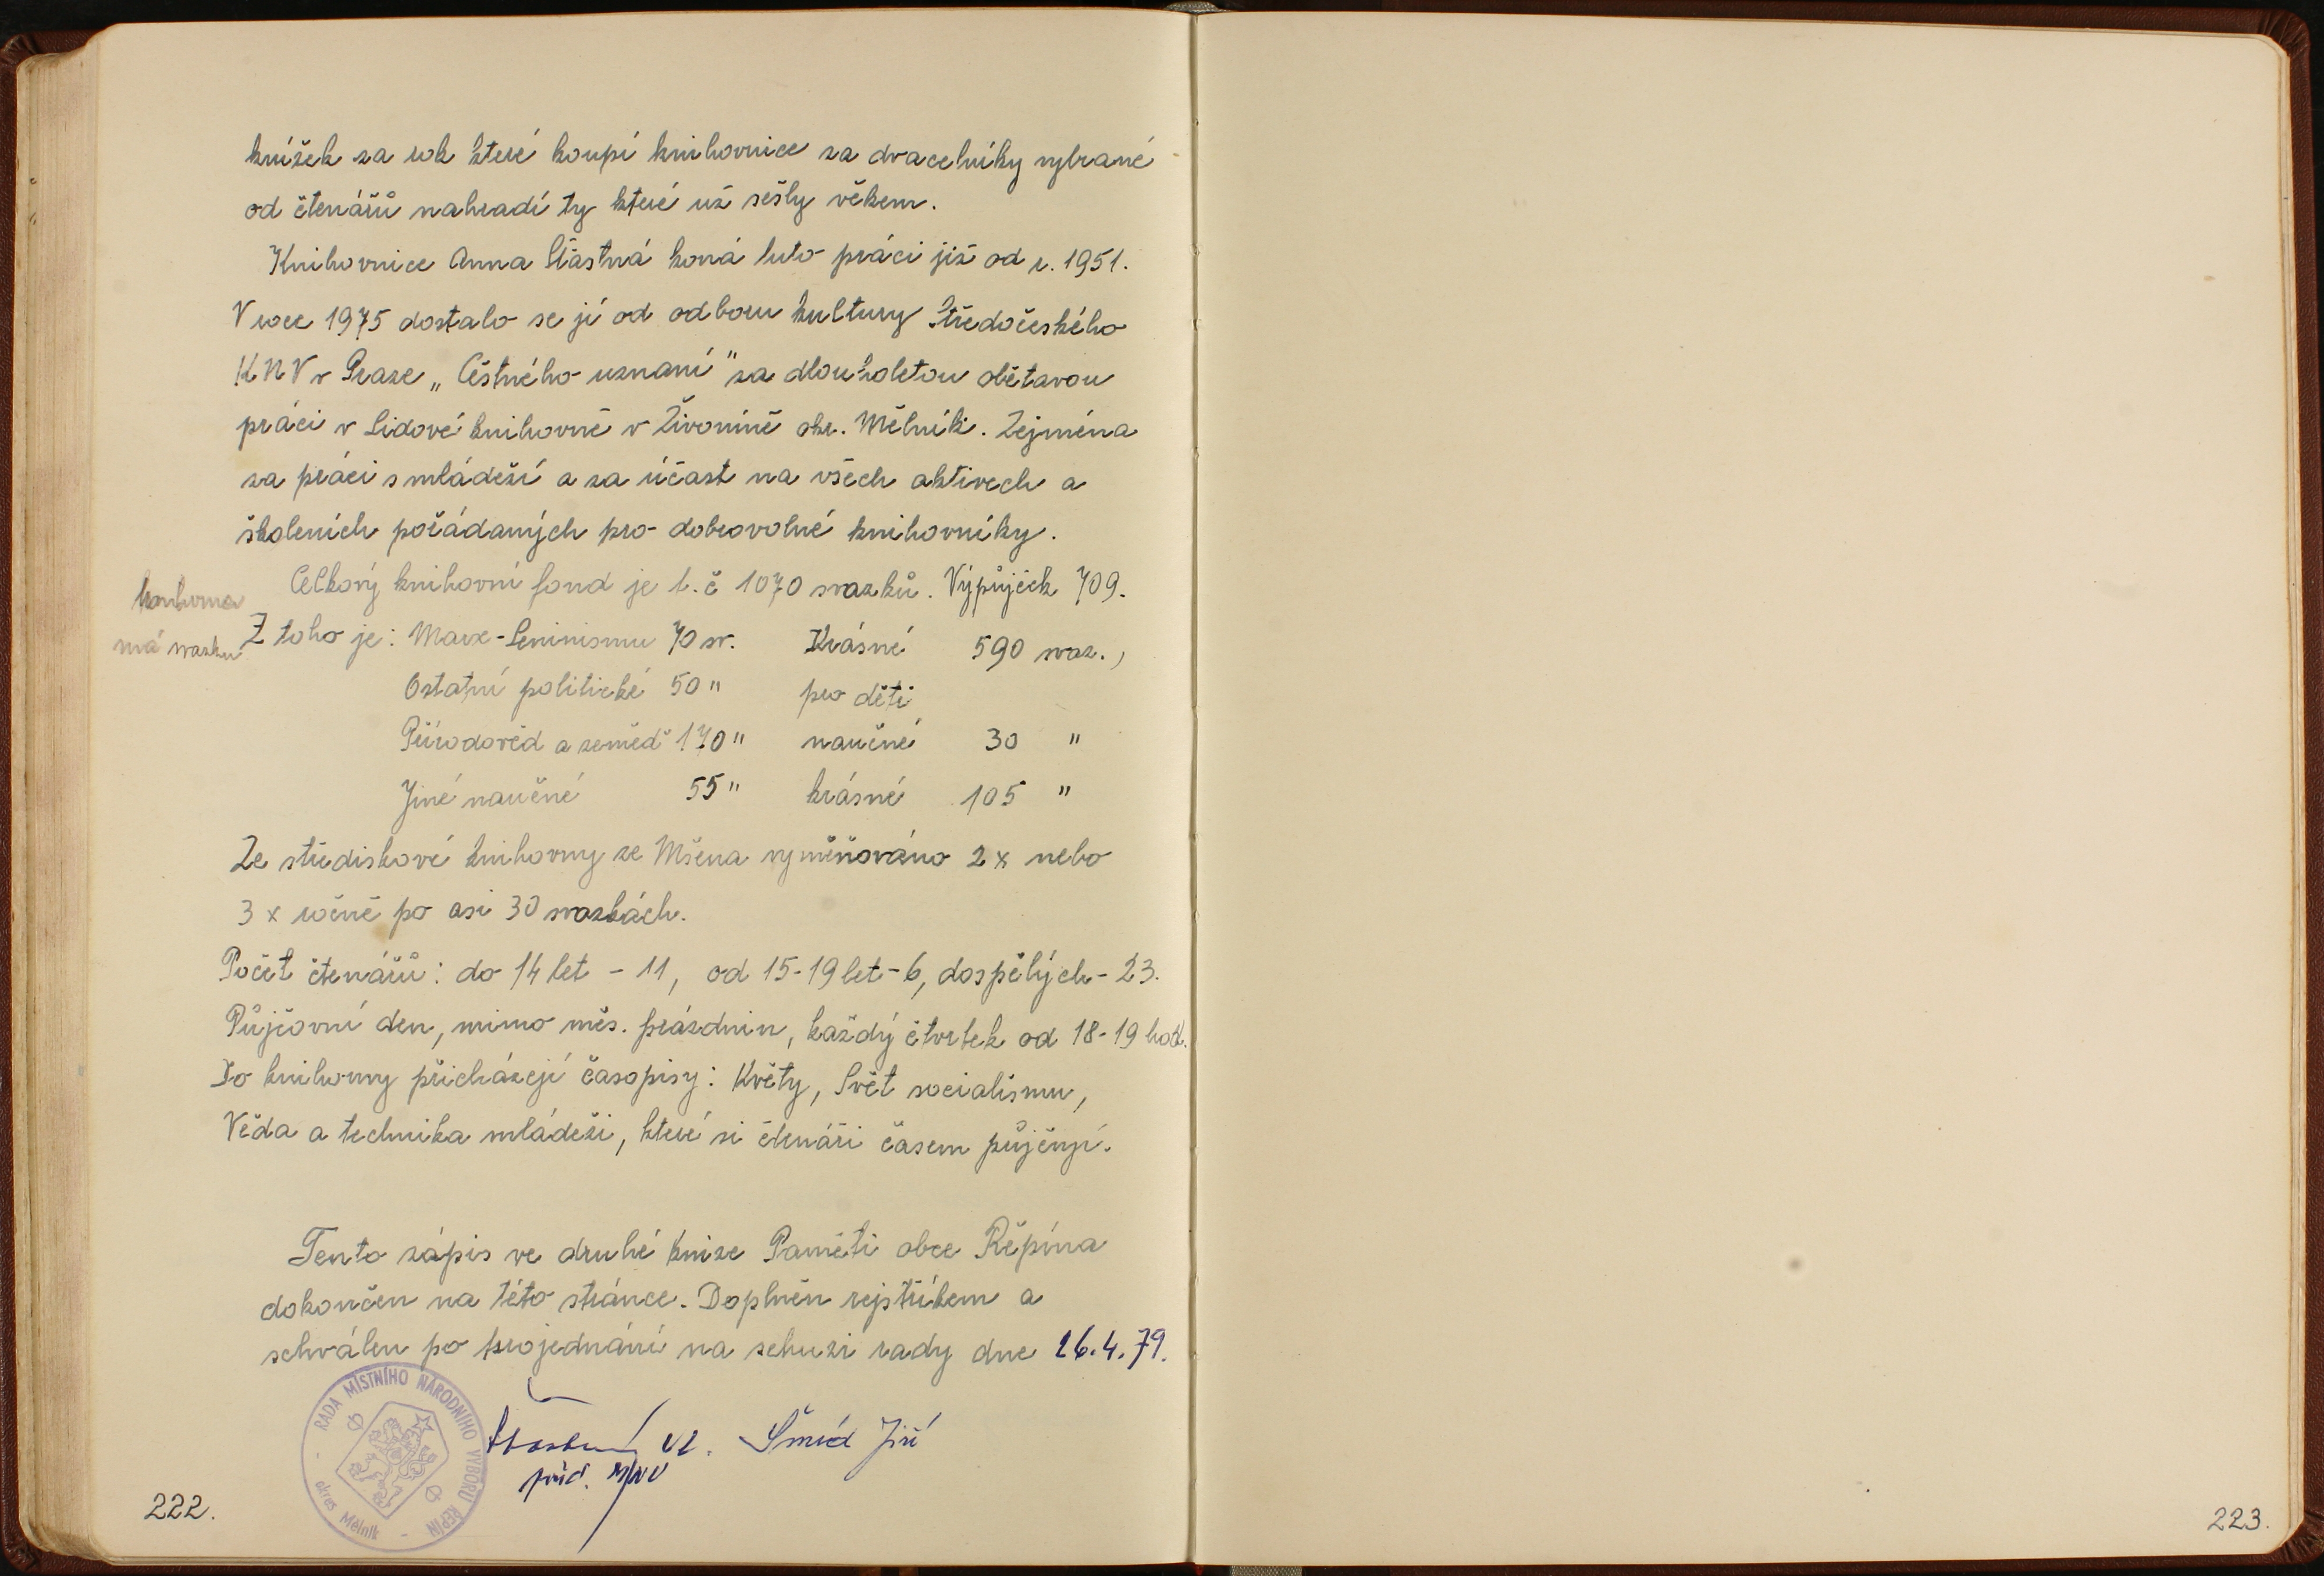 knížek za rok které koupí knihovnice za dvacetníky vybrané
od čtenářů nahradí ty které už sešly věkem.
Knihovnice Anna Šťastná koná tuto práci již od r. 1951.
V roce 1975 dostalo se jí od odboru kultury Středočeského
KNV v Praze „Čestného uznaní" za dlouholetou obětavou
práci v Lidové knihovně v Živoníně okr. Mělník. Zejména
za práci s mládeží a za účast na všech aktivech a
školeních pořádaných pro dobrovolné knihovníky.
Celkový knihovní fond je t.č 1070 svazků. Výpůjček 709.
knihovna
má svazku
Z toho je: Marx-Leninismu 70 sv. Krásné 590 svaz.,
Ostatní politické 50 " pro děti
Přírodověd a zeměd 170 " naučné 30 "
Jiné naučné 55 " krásné 105 "
Ze střediskové knihovny ze Mšena vyměňováno 2x nebo
3 x ročně po asi 30 svazkách.
Počet čtenářů: do 14 let - 11, od 15-19 let - 6, dospělých - 23.
Půjčovní den, mimo měs. prázdnin, každý čtvrtek od 18-19 hod.
Do knihovny přicházejí časopisy: Květy, Svět socialismu,
Věda a technika mládeži, které si čtenáři časem půjčují.
Tento zápis ve druhé knize Paměti obce Řepína
dokončen na této stránce. Doplněn rejstříkem a
schválen po projednání na schuzi rady dne 26.4.79.
RADA MÍSTNÍHO NÁRODNÍHO VÝBORU ŘEPÍN
- okres Mělník -
Vl. Šmíd Jiří
před. MNV
222.
223.